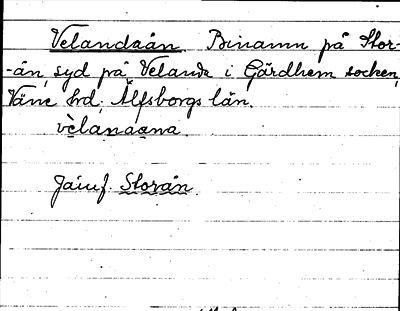 Velandaån. Binamn på Stor-
-ån, syd på Velanda i Gärdhem socken,
Väne hd, Älfsborgs län.
Jämf. Storån.